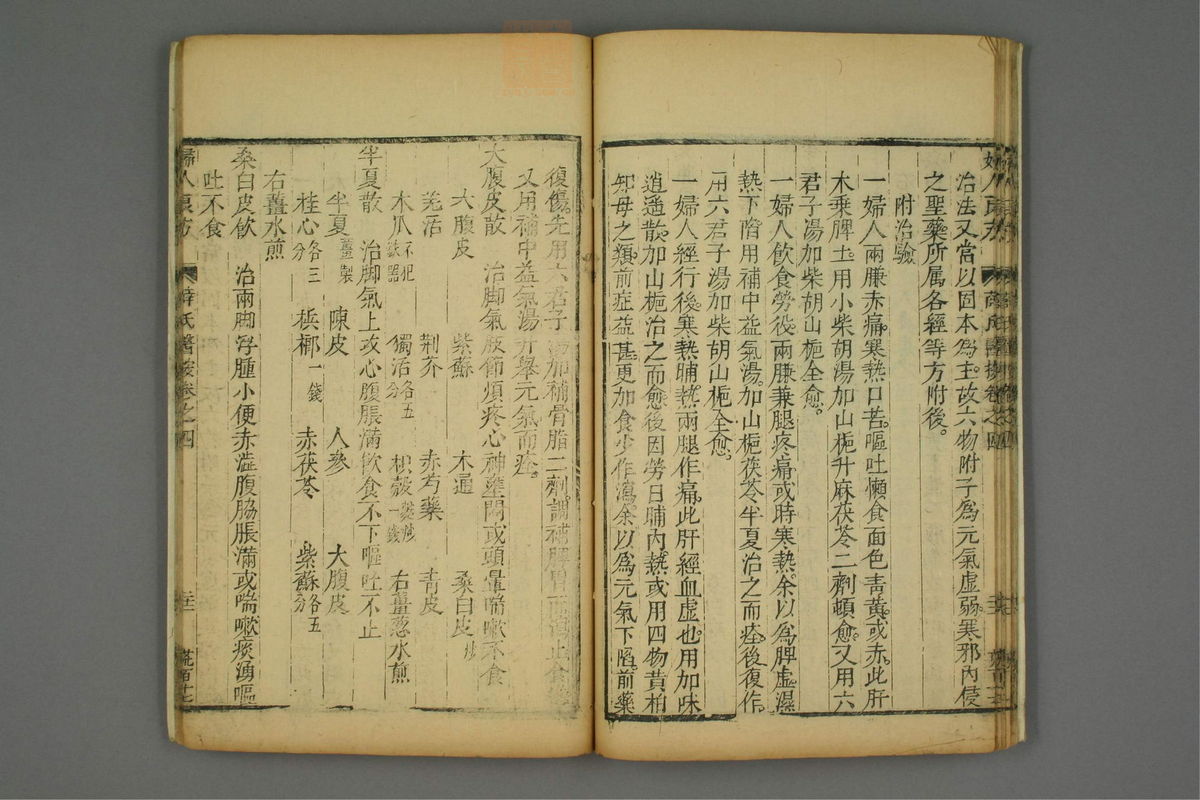 治法又當以固本爲主故六物附子爲元氣虛弱寒邪内侵
之聖藥所属各經等方附後。
附治驗
一婦人兩膁赤痛。寒熱口苦。嘔吐懶食面色靑黃。或赤。此肝
木乗脾土。用小柴胡湯加山梔升麻茯苓二劑頓愈。又用六
君子湯加柴胡山梔全愈。
一婦人飮食勞役。兩膁兼腿疼痛或時寒熱。余以爲脾虛濕
熱下陷用補中益氣湯。加山梔茯苓半夏治之而痊。後復作。
用六君子湯加柴胡山梔全愈。
一婦人經行後寒熱晡熱。兩腿作痛。此肝經血虛也。用加味
逍遥散。加山梔治之而愈後因勞日晡内熱或用四物黃柏
知母之類。前症益甚。更加食少作瀉。余以爲元氣下陷。前藥
復傷。先用六君子湯加補骨脂二劑。調補脾胃而瀉止食
又用補中益氣湯升舉元氣而痊。
大腹皮散 治脚氣肢節煩疼心神壅悶或頭暈喘嗽不食
大腹皮 紫蘇 木通 桑白皮
羌活 荆芥 赤芍藥 靑皮
木爪不犯鉄器 獨活各五分 枳殼 右薑葱水煎
半夏散 治脚氣上攻心腹脹滿飮食不下嘔吐不止
半夏薑製 陳皮 人參 大腹皮
桂心各三分 檳榔一錢 赤茯苓 紫蘇各五分
右薑水煎
桑白皮飮 治兩脚浮腫小便赤澁腹脇脹滿或喘嗽痰湧嘔
吐不食
婦人良方 薛氏醫按卷之四